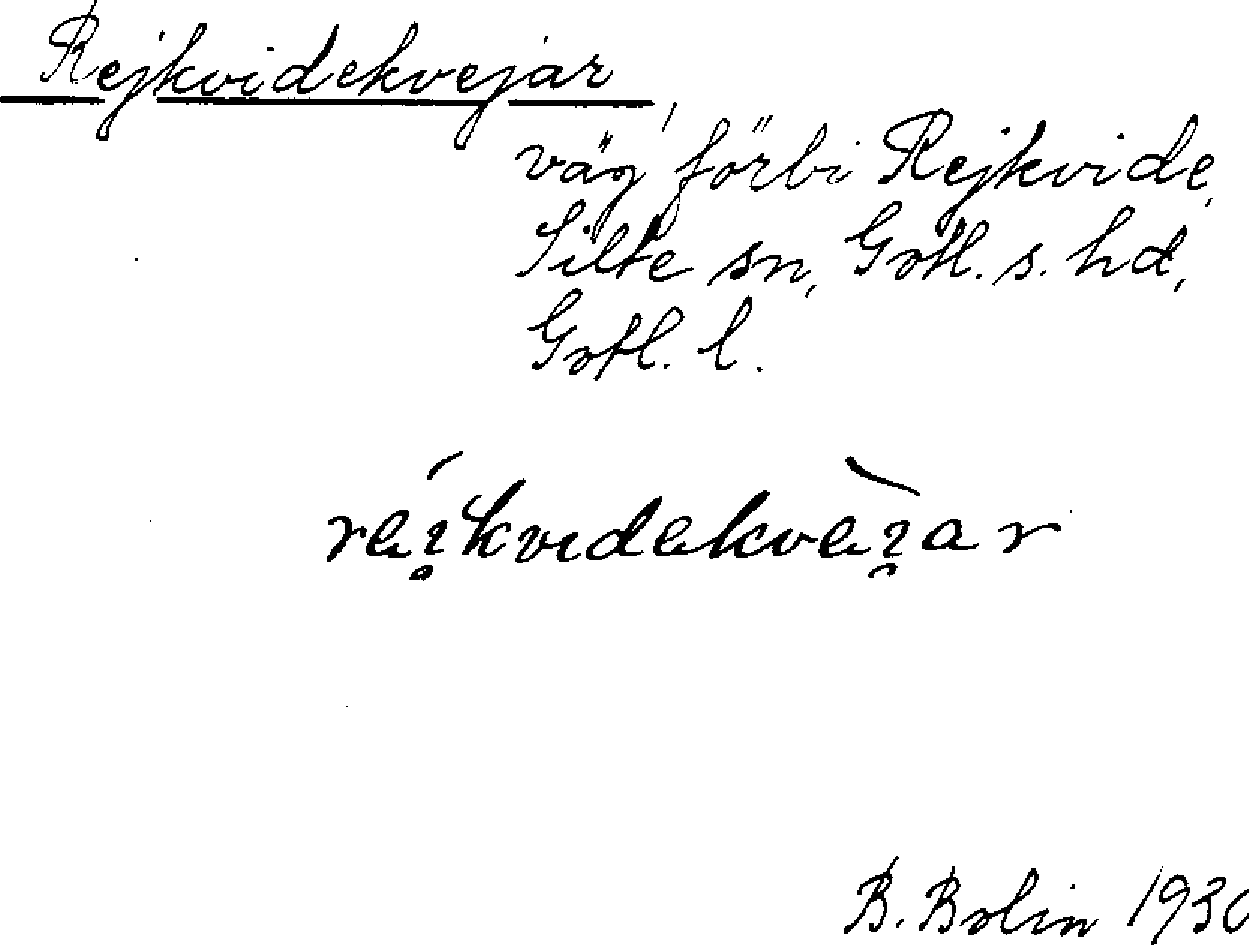 Rejkvidekvejar,
väg förbi Rejkvide,
Silte sn, Gotl. s. hd,
Gotl. l.
B. Bolin 1930